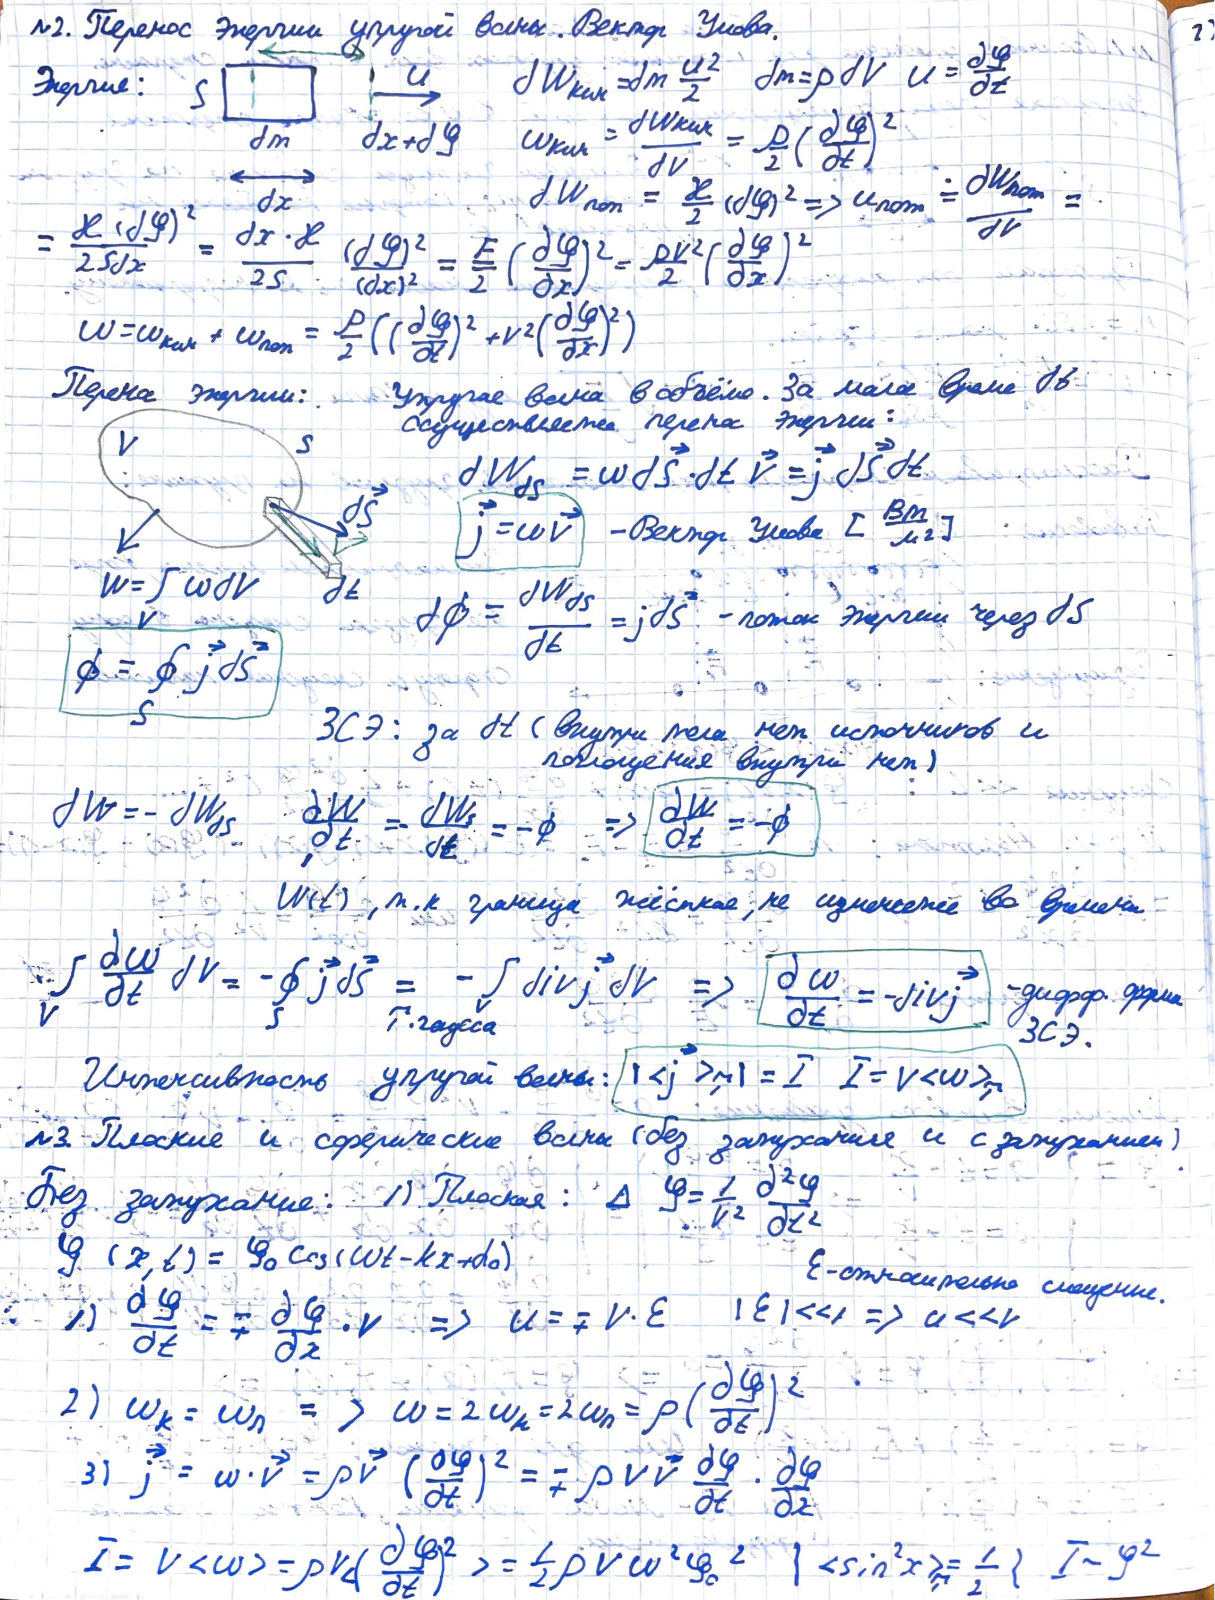 №2. Перенос энергии упругой волны. Вектор Умова.
Энергия: S u dWкин = dm u²/2 dm = ρdV u = ∂φ/∂t
dm dx+dφ wкин = dWкин/dV = ρ/2 (∂φ/∂t)²
dx dWпот = ϰ/2 (dφ)² => wпот = dWпот/dV =
= ϰ(dφ)²/2Sdx = dx·ϰ/2S (dφ)²/(dx)² = E/2 (∂φ/∂x)² = ρv²/2 (∂φ/∂x)²
w = wкин + wпот = ρ/2 ((∂φ/∂t)² + v²(∂φ/∂x)²)
Перенос энергии: Упругая волна в объёме. За малое время dt
осуществляется перенос энергии:
V S dWdS = w dS⃗·dt v⃗ = j⃗ dS⃗ dt
dS⃗ j⃗ = wv⃗ - Вектор Умова [Вт/м²]
W = ∫V w dV dt dФ = dWdS/dt = j dS⃗ - поток энергии через dS
Ф = ∮S j⃗ dS⃗
ЗСЭ: за dt (внутри тела нет источников и
поглощения внутри нет)
dW = - dWdS ∂W/∂t = - dWs/dt = -Ф => ∂W/∂t = -Ф
W(t), т.к граница жёсткая, не изменяется во времени
∫V ∂w/∂t dV = -∮S j⃗ dS⃗ = - ∫V div j⃗ dV => ∂w/∂t = -div j⃗ - дифф. форма
Т. Гаусса ЗСЭ.
Интенсивность упругой волны: |<j⃗>т| = I I = v<w>т
№3. Плоские и сферические волны (без затухания и с затуханием)
Без затухания: 1) Плоская: Δ φ = 1/v² ∂²φ/∂t²
φ (x,t) = φ₀ cos(wt - kx + α₀)
ε - относительно смещение.
1) ∂φ/∂t = ∓ ∂φ/∂x · v => u = ∓ v·ε |ε| <<1 => u << v
2) wк = wп => w = 2wк = 2wп = ρ(∂φ/∂t)²
3) j⃗ = w·v⃗ = ρv⃗ (∂φ/∂t)² = ∓ ρ v v⃗ ∂φ/∂t · ∂φ/∂x
I = v<w> = ρv<(∂φ/∂t)²> = 1/2 ρ v w² φ₀² } <sin²x>т = 1/2 { I ~ φ²
2)